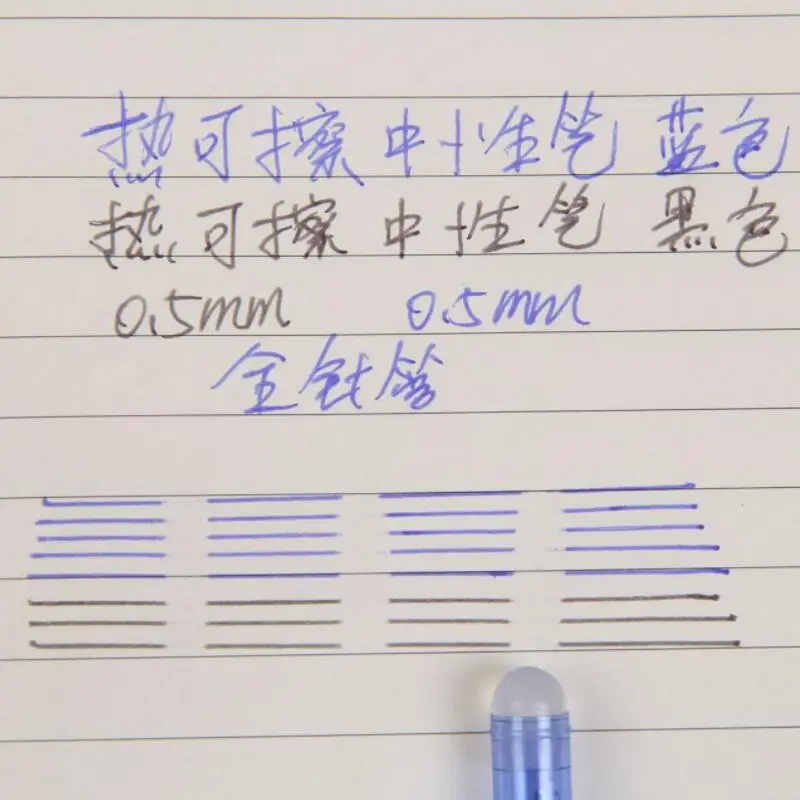 热可擦中性笔 蓝色
热可擦中性笔 黑色
0.5mm 0.5mm
全针管